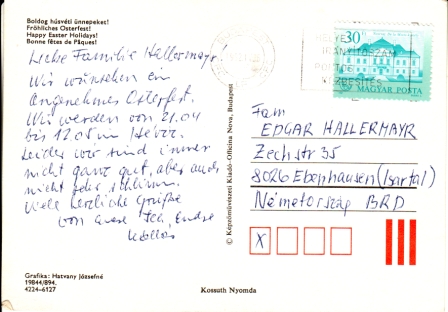 Boldog húsvéti ünnepeket!
Fröhliches Osterfest!
Happy Easter Holidays!
Bonne fêtes de Pâques!
Liebe Familie Hallermayr!
Wir wünschen ein
angenehmes Osterfest.
Wir werden von 21.04
bis 12.05 in
Leider wir sind immer
nicht ganz gut, aber auch
nicht sehr schlimm.
Viele herzliche Grüße
von
Grafika: Hatvany Józsefné
19844/894.
4224-6127
© Képzőművészeti Kiadó-Officina Nova, Budapest
Kossuth Nyomda
IRÁNYÍTÓSZÁM
KÉZBESÍTÉS
30
MAGYAR POSTA
Fam
EDGAR HALLERMAYR
Zechstr 35
8026 Ebenhausen (Isartal)
Németország BRD
X